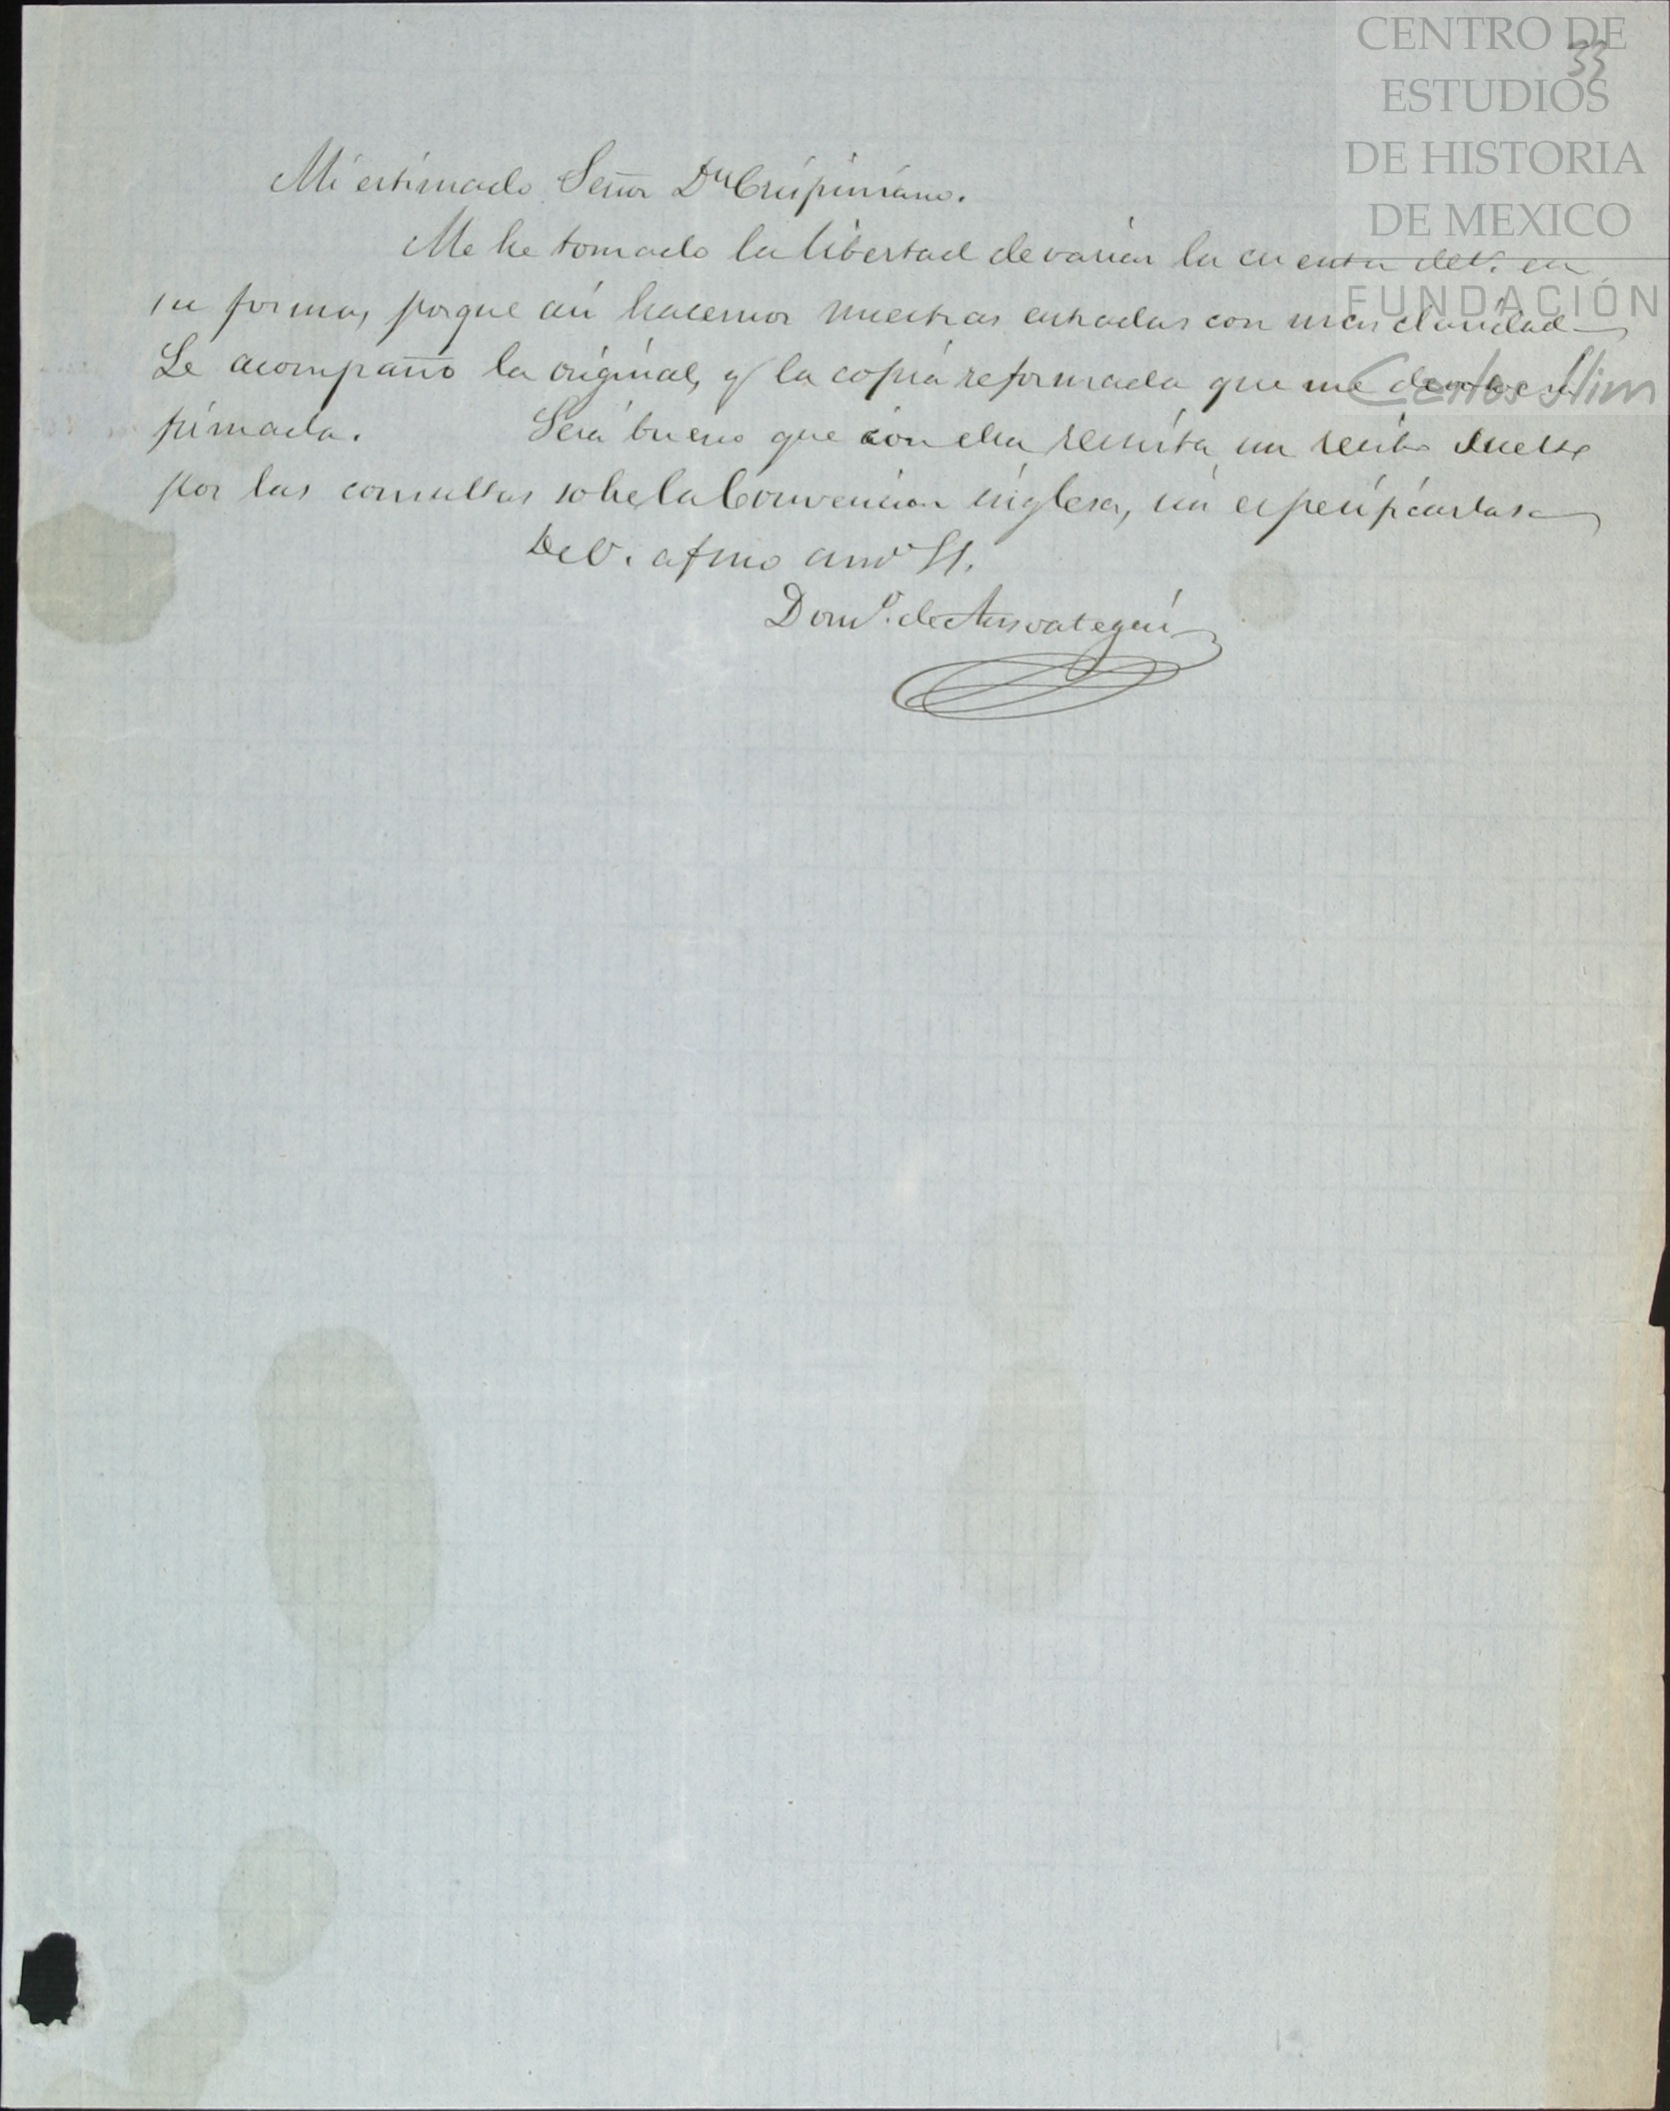 CENTRO DE
ESTUDIOS
DE HISTORIA
DE MEXICO
FUNDACIÓN
Carlos Slim
33
Mi estimado Señor Dn Crispiniano.
Me he tomado la libertad de variar la cuenta de V. en
su forma, porque asi hacemos nuestras entradas con mas claridad
Le acompaño la original, y la copia reformada que me devolverá
firmada. Será bueno que con ella remita un recibo suelto
por las consultas sobre la Convencion inglesa, sin especificarlas
De V. afmo amo SS.
Domo. de Ansoategui